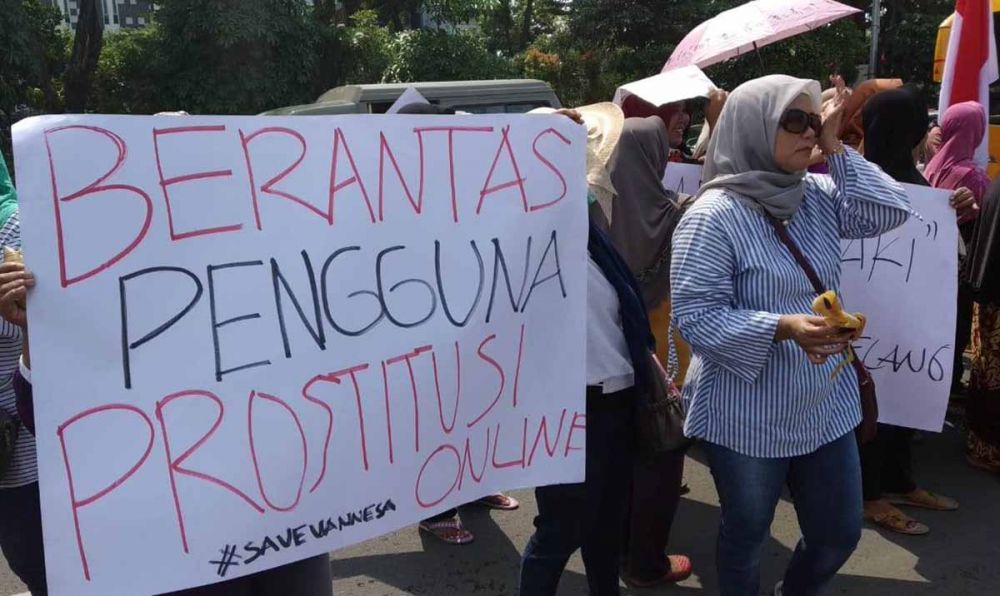 BERANTAS
PENGGUNA
PROSTITUSI
ONLINE
#SAVEVANNESA